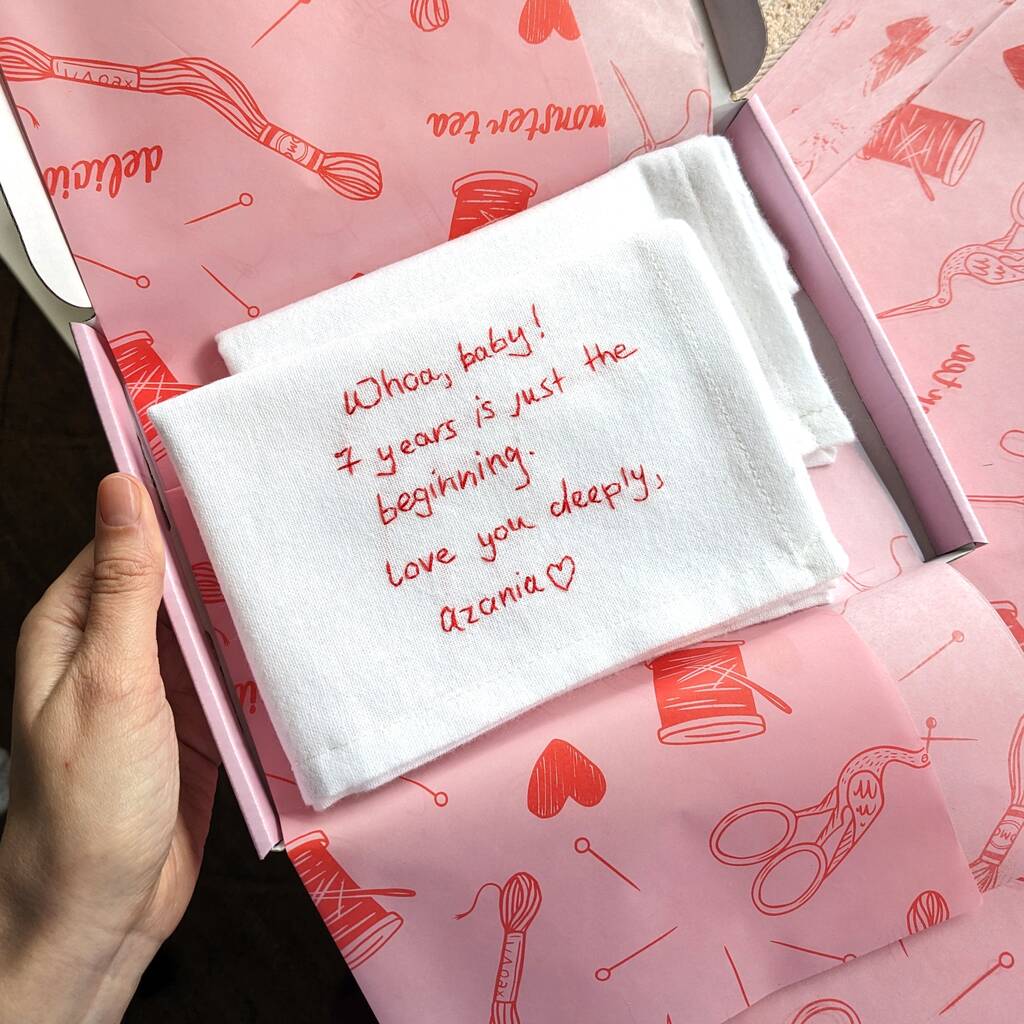 Whoa, baby!
7 years is just the
beginning.
Love you deeply,
azania♡
monster tea
xoxo